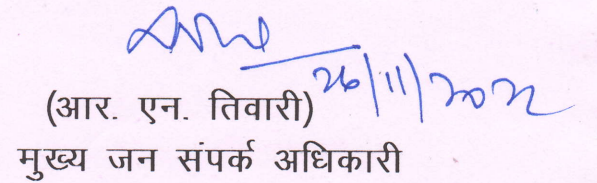 26/11/2022
(आर. एन. तिवारी)
मुख्य जन संपर्क अधिकारी